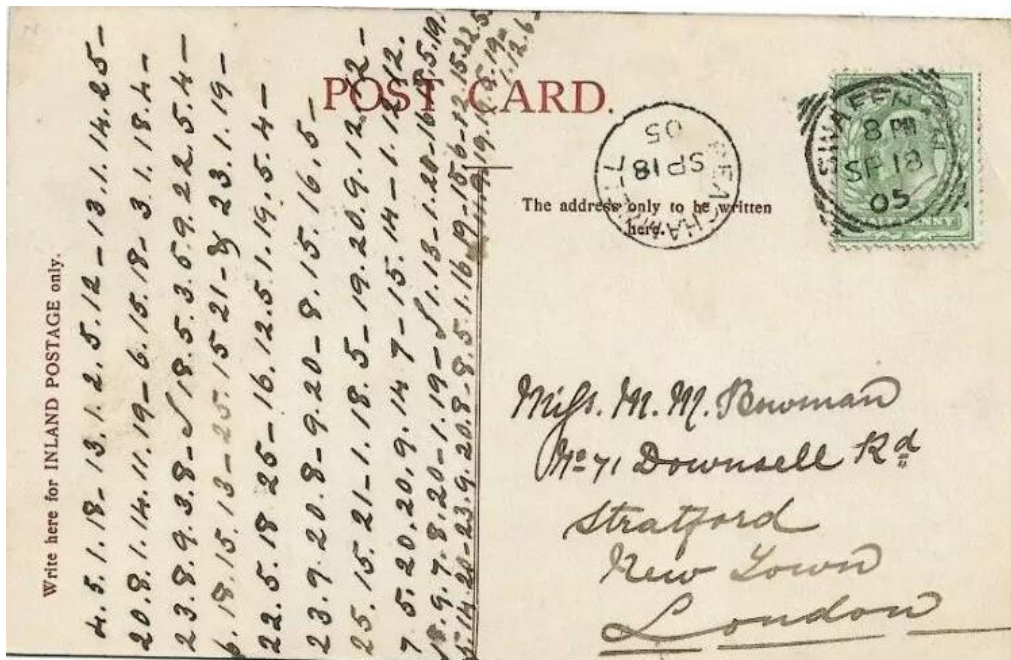 POST CARD.
The address only to be written
here.
Write here for INLAND POSTAGE only.
4.5.1.18-13.1.2.5.12-13.1.14.25-
20.8.1.14.11.19-6.15.18-3.1.18.4-
23.8.9.3.8-I 18.5.3.5.9.22.5.4-
6.18.15.13-25.15 21-& 23.1.19-
22.5.18 25-16.12.5.1.19.5.4-
23.9.20.8-9.20-8.15.16.5-
25.15.21-1.18.5-19.20.9.12.12-
7.5.20.20.9.14 7-15.14-1.12.12.
18.9.7.8.20-1.19-I 1.13-1.20-16.18.5.19.
5.14.20-23.9.20.8-8.5.1.16.19-15.6-12.15.22.5-
1.12.6-
8 PM
SP 18
05
SP 18
05
Miss. M. M. Bowman
No 71 Downsell Rd
Stratford
New Town
London